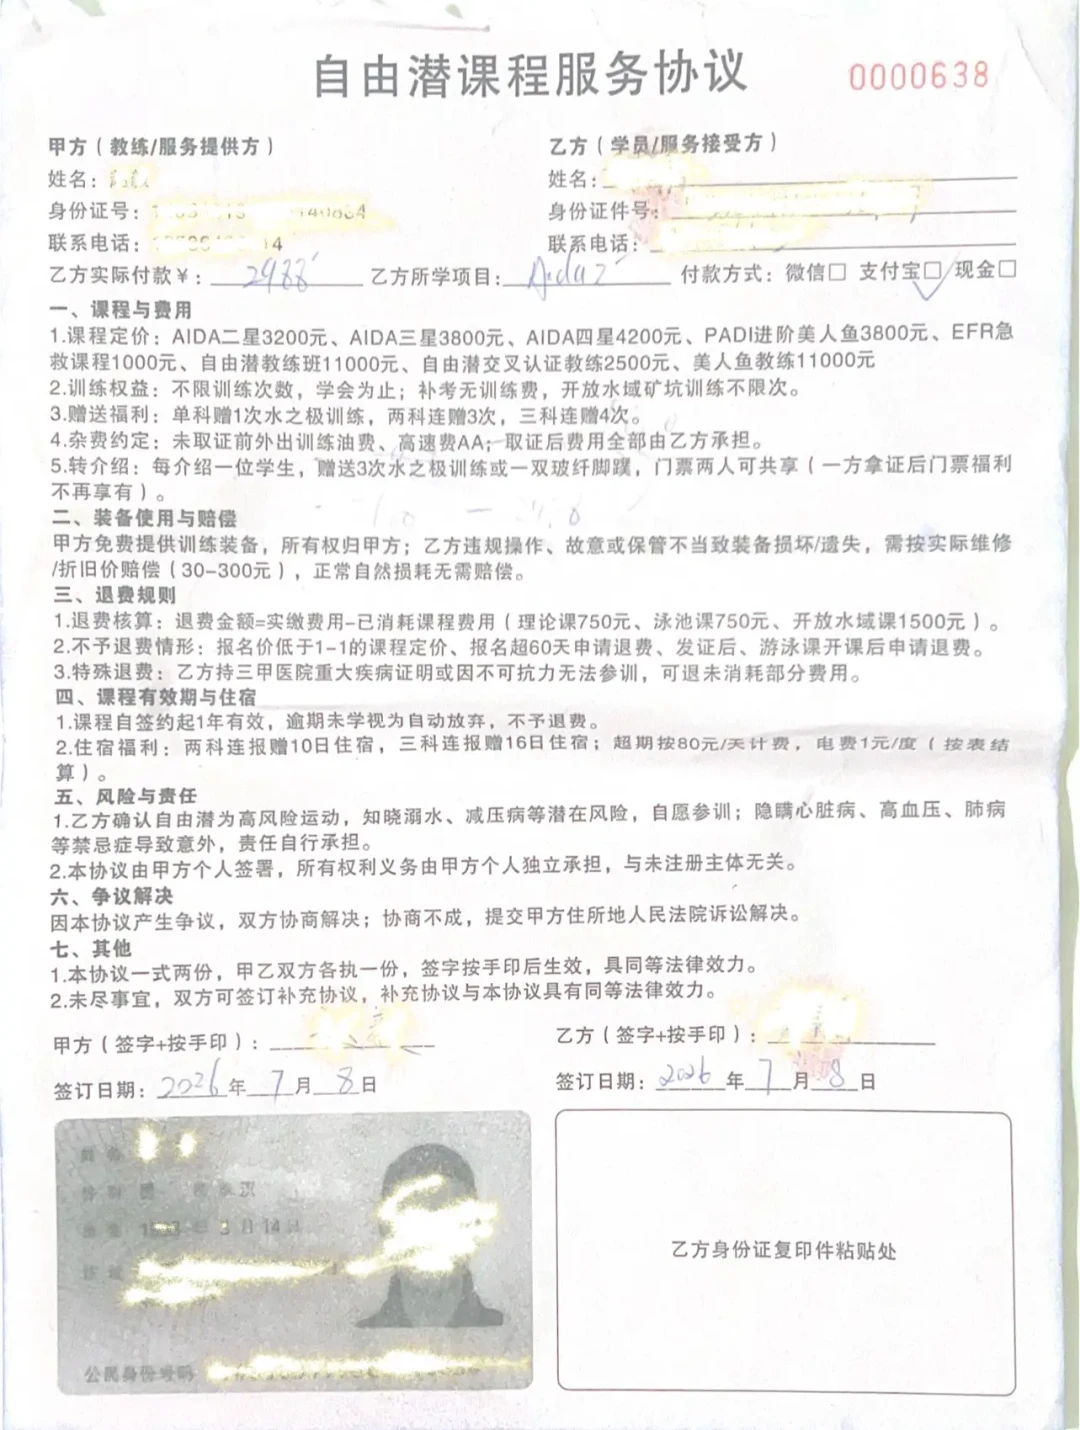 自由潜课程服务协议
0000638
甲方（教练/服务提供方）
乙方（学员/服务接受方）
姓名：
姓名：
身份证号：
身份证件号：
联系电话：
联系电话：
乙方实际付款￥： 2988 乙方所学项目： Aida2 付款方式：微信□ 支付宝□ 现金□
一、课程与费用
1.课程定价：AIDA二星3200元、AIDA三星3800元、AIDA四星4200元、PADI进阶美人鱼3800元、EFR急
救课程1000元、自由潜教练班11000元、自由潜交叉认证教练2500元、美人鱼教练11000元
2.训练权益：不限训练次数，学会为止；补考无训练费，开放水域矿坑训练不限次。
3.赠送福利：单科赠1次水之极训练，两科连赠3次，三科连赠4次。
4.杂费约定：未取证前外出训练油费、高速费AA；取证后费用全部由乙方承担。
5.转介绍：每介绍一位学生，赠送3次水之极训练或一双玻纤脚蹼，门票两人可共享（一方拿证后门票福利
不再享有）。
二、装备使用与赔偿
甲方免费提供训练装备，所有权归甲方；乙方违规操作、故意或保管不当致装备损坏/遗失，需按实际维修
/折旧价赔偿（30-300元），正常自然损耗无需赔偿。
三、退费规则
1.退费核算：退费金额=实缴费用-已消耗课程费用（理论课750元、泳池课750元、开放水域课1500元）。
2.不予退费情形：报名价低于1-1的课程定价、报名超60天申请退费、发证后、游泳课开课后申请退费。
3.特殊退费：乙方持三甲医院重大疾病证明或因不可抗力无法参训，可退未消耗部分费用。
四、课程有效期与住宿
1.课程自签约起1年有效，逾期未学视为自动放弃，不予退费。
2.住宿福利：两科连报赠10日住宿，三科连报赠16日住宿；超期按80元/天计费，电费1元/度（按表结
算）。
五、风险与责任
1.乙方确认自由潜为高风险运动，知晓溺水、减压病等潜在风险，自愿参训；隐瞒心脏病、高血压、肺病
等禁忌症导致意外，责任自行承担。
2.本协议由甲方个人签署，所有权利义务由甲方个人独立承担，与未注册主体无关。
六、争议解决
因本协议产生争议，双方协商解决；协商不成，提交甲方住所地人民法院诉讼解决。
七、其他
1.本协议一式两份，甲乙双方各执一份，签字按手印后生效，具同等法律效力。
2.未尽事宜，双方可签订补充协议，补充协议与本协议具有同等法律效力。
甲方（签字+按手印）：
乙方（签字+按手印）：
签订日期：2026年7月8日
签订日期：2026年7月8日
公民身份号码
乙方身份证复印件粘贴处